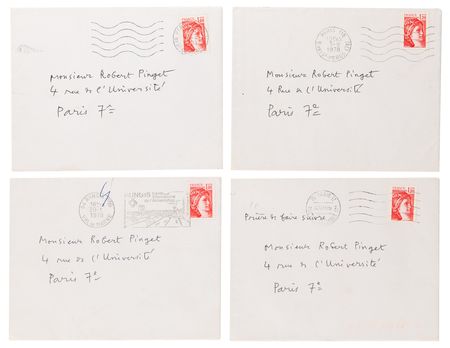 Monsieur Robert Pinget
4 rue de l'Université
Paris 7e
FRANCE
Monsieur Robert Pinget
4 Rue de l'Université
Paris 7e
1978
FRANCE
Monsieur Robert Pinget
4 rue de l'Université
Paris 7e
1978
RUNGIS
FRANCE
Prière de faire suivre
Monsieur Robert Pinget
4 rue de l'Université
Paris 7e
FRANCE